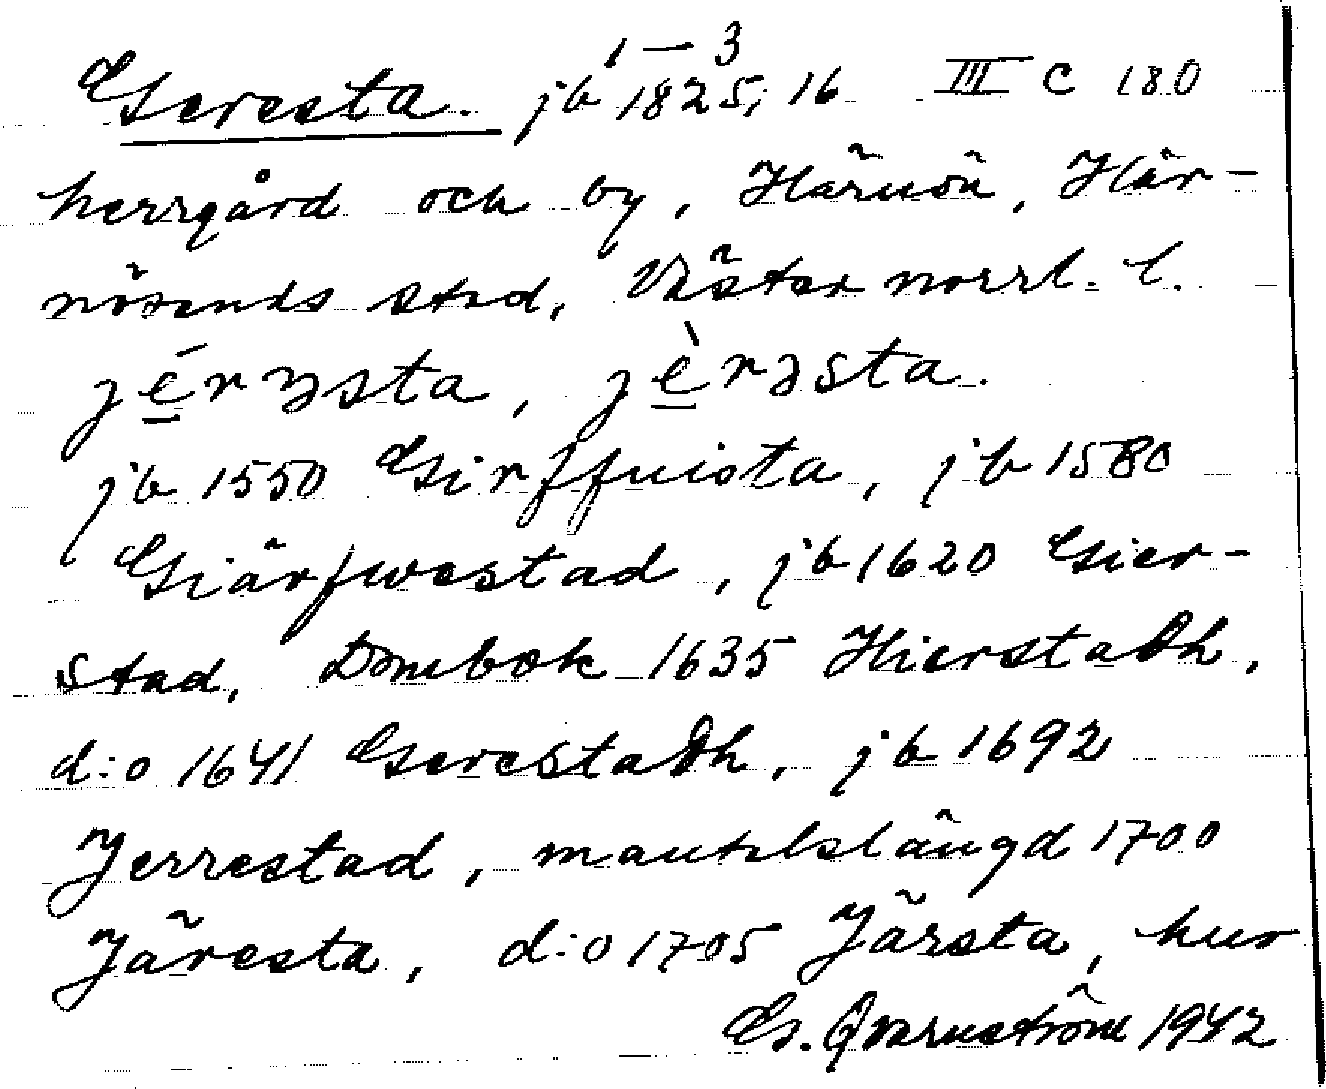 1–3
Geresta. jb 1825; 16 III C 180
herrgård och by, Härnön, Här-
nösands stad, Västernorrl. l.
jérysta, jèrəsta.
jb 1550 Girffuista, jb 1580
Giärfwestad, jb 1620 Gier-
stad, Dombok 1635 Hierstadh,
d:o 1641 Gerestadh, jb 1692
Jerrestad, mantalslängd 1700
Järesta, d:o 1705 Järsta, hur
G. Qvarnström 1942